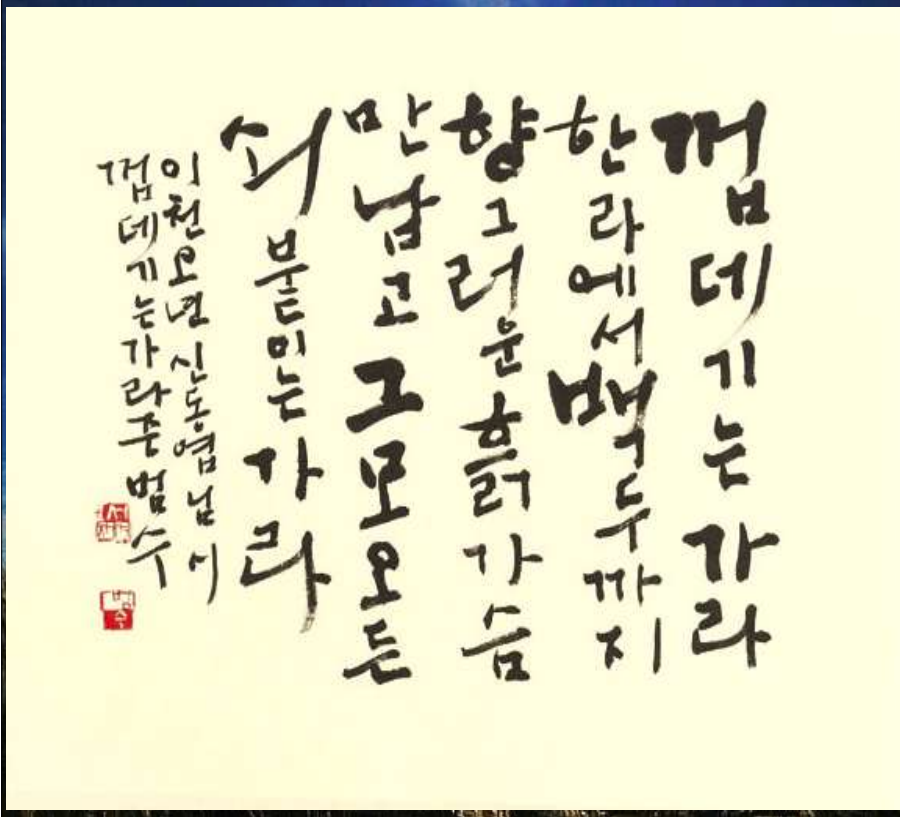 껍데기는 가라
한라에서 백두까지
향그러운 흙가슴
만 남고 그 모오든
쇠붙이는 가라
이천오년 신동엽님 시
껍데기는가라중 범수
범수